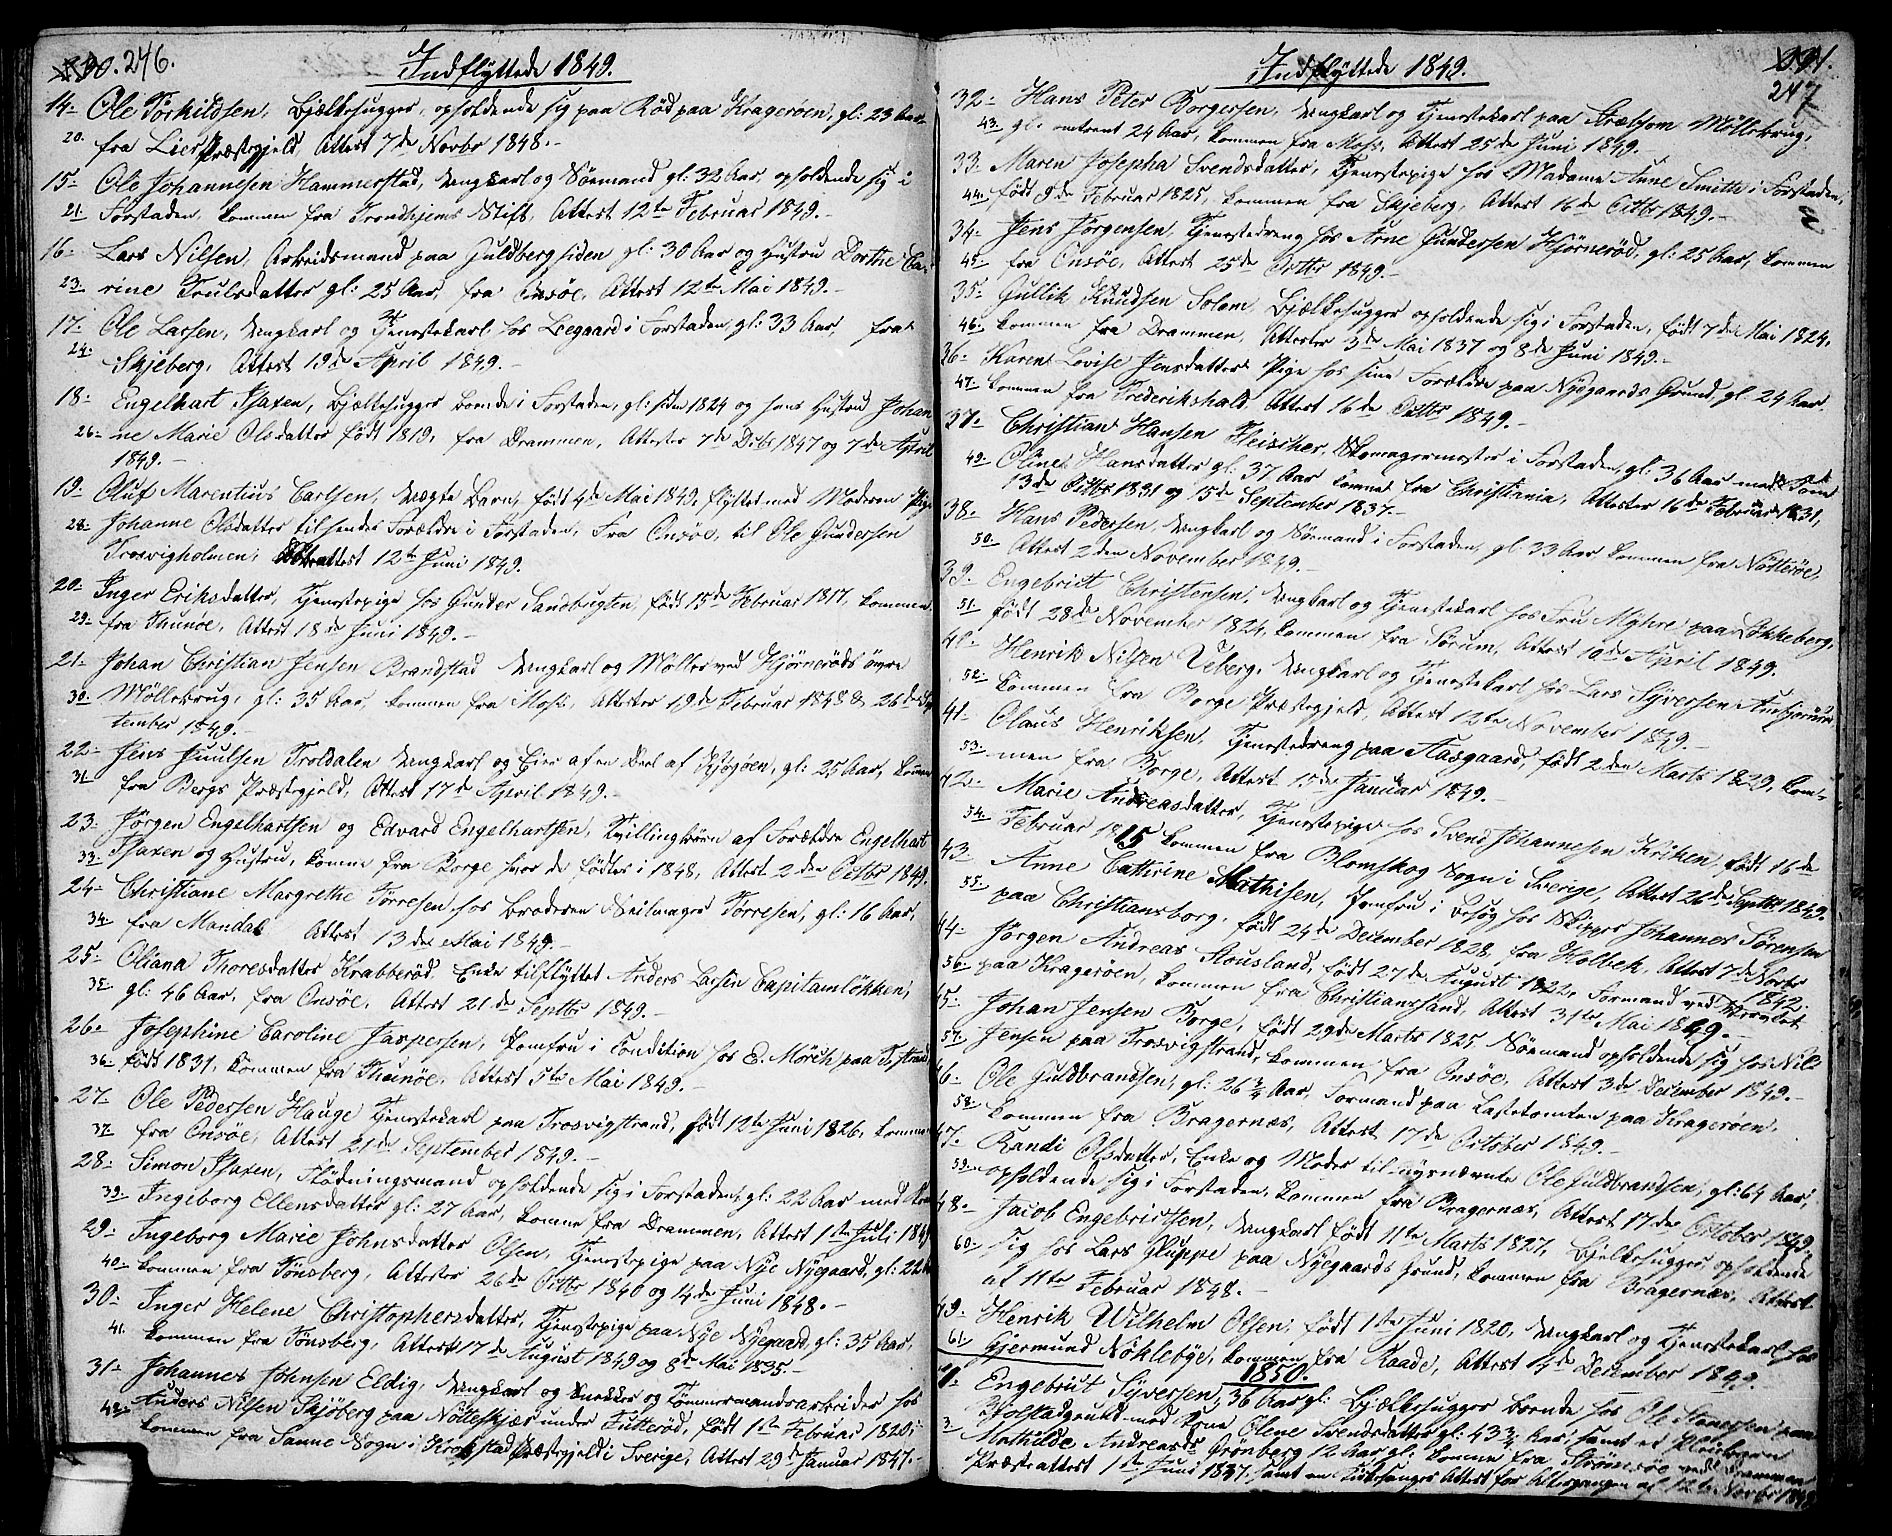 246.
Indflyttede 1849.
14- Ole Törkildsen, Bjælkehugger, opholdende sig paa Rød paa Kragerøen, gl: 23 Aar
20. fra Liers Præstegjeld, Attest 7de Novbr 1848.-
15- Ole Johannesen Hammerstad, Ungkarl og Sømand gl: 32 Aar, opholdende sig i
21. Forstaden, kommen fra Trondhjems Stift, Attest 12te Februar 1849.-
16- Lars Nilsen, Arbeidsmand paa Guldbergsiden gl: 30 Aar og Hustru Dorthe Ca-
23. rine Trulsdatter gl: 25 Aar, fra Onsøe, Attest 12te Mai 1849.-
17- Ole Larsen, Ungkarl og Tjenestekarl hos Leegaard i Forstaden, gl: 33 Aar, fra
24. Skjeberg, Attest 19de April 1849.-
18- Engelhart Isaxen, Bjælkehugger boende i Forstaden, gl: siden 1824 og hans Hustru Johan
26- ne Marie Olsdatter født 1819, fra Drammen, Attester 7de Debr 1847 og 7de April
1849.-
19- Oluf Marentius Carlsen, uægte Barn, født 4de Mai 1849, flyttet med Moderen Pige
28- Johanne Olsdatter til hendes Forældre i Forstaden, fra Onsøe, til Ole Gundersen
Trosvigholmen, attest 12te Juni 1849.
20- Inger Eriksdatter, Tjenestepige hos Gunder Sandbugten, født 15de Februar 1817, kommen
29- fra Thunøe, Attest 18de Juni 1849.-
21- Johan Christian Jensen Brandstad Ungkarl og Møller ved Hjørnerøds øvre
30- Møllebrug, gl: 35 Aar, kommen fra Moss, Attester 19de Februar 1848 & 26de Sep
tember 1849.-
22- Jens Juulsen Troldalen Ungkarl og Eier af en Deel af Kjøjøen, gl: 25 Aar, kommen
31. fra Bergs Præstegjeld, Attest 17de April 1849.-
23- Jørgen Engelhartsen og Edvard Engelhartsen, Tvillingbørn af Forældre Engelhart
33- Isaxen og Hustru, komne fra Borge hvor de fødtes i 1848, Attest 2den Octbr 1849.
24- Christiane Margrethe Tørresen hos Broderen Seilmager Tørresen, gl: 16 Aar,
34. fra Mandal Attest 13de Mai 1849.-
25- Oliana Thoresdatter Krabberød, Enke tilflyttet Anders Larsen Capitainløkken,
35. gl: 46 Aar, fra Onsøe, Attest 21de Septbr 1849.-
26- Josephine Caroline Jaspersen, Jomfru i Condition hos E. Mørch paa
36- født 1831, kommen fra Thunøe, Attest 5te Mai 1849.-
27- Ole Pedersen Hauge Tjenestekarl paa Trosvigstrand, født 12te Juni 1826, kommen
37. fra Onsøe, Attest 21de September 1849.-
28- Simon Isaxen, Flødningsmand opholdende sig i Forstaden, gl: 22 Aar med Kone
39. Ingeborg Ellensdatter gl: 27 Aar, komne fra Drammen, Attest 1ste Juli 1849
29- Ingeborg Marie Johnsdatter Olsen, Tjenestepige paa Nye Nygaard, gl: 22 Aar
40. kommen fra Tønsberg, Attester 26de Octbr 1840 og 14de Juni 1848.-
30- Inger Helene Christophersdatter, Tjenestepige paa Nye Nygaard, gl: 35 Aar,
41. kommen fra Tønsberg, Attest 17de August 1849 og 8de Mai 1835.-
31- Johannes Johnsen Eldig, Ungkarl og Snekker og Tømmermandsarbeider hos
42- Anders Nilsen Skjøberg paa Nøtteskjær under Tutterød, født 1ste Februar 1820,
kommen fra Sanne Sogn i Krokstad Præstegjeld i Sverige, Attest 29de Januar 1847.-
Indflyttede 1849.
247
32- Hans Peter Borgersen, Ungkarl og Tjenestekarl paa Møllebrug,
43. gl: omtrent 24 Aar, kommen fra Moss, Attest 25de Juni 1849.-
33- Maren Josepha Svendsdatter, Tjenestepige hos Madame Anne Smitts i Forstaden,
44. født 9de Februar 1825, kommen fra Skjeberg, Attest 16de Octbr 1849.-
34- Jens Jörgensen, Tjenestedreng hos Arne Gundersen Hjørnerød, gl: 25 Aar, kommen
45- fra Onsøe, Attest 25de Octbr 1849.-
35- Gullik Knudsen Solem, Bjælkehugger opholdende sig i Forstaden, født 7de Mai 1824,
46. kommen fra Drammen, Attester 3de Mai 1837 og 8de Juni 1849.-
36- Karen Lovise Jensdatter Pige hos sine Forældre paa Nygaards Grund, gl: 24 Aar.
47. kommen fra Frederikshald, Attest 16de Octbr 1849.-
37- Christian Hansen Fleischer, Skomagermester i Forstaden, gl: 36 Aar med Kone
49. Oline Hansdatter gl: 37 Aar komne fra Christiania, Attester 16de Februar 1831,
13de Octbr 1831 og 15de September 1837.-
38- Hans Pedersen, Ungkarl og Sømand i Forstaden, gl: 33 Aar kommen fra Nøtterøe,
50. Attest 2den November 1849.-
39. Engebrict Christensen, Ungkarl og Tjenestekarl hos Fru Myhre paa Løkkeberg,
51. født 28de November 1824, kommen fra Sørum, Attest 10de April 1849.
40- Henrik Nilsen Veberg, Ungkarl og Tjenestekarl hos Lars Syversen
52- kommen fra Borge Præstegjeld, Attest 12te November 1849.-
41- Olaus Henriksen, Tjenestedreng paa Aasgaard, født 2den Marts 1829, kom-
53. men fra Borge, Attest 15de Januar 1849.-
42- Marie Andreasdatter, Tjenestepige hos Svend Johannesen Kriken, født 16de
54. Februar 1815 kommen fra Blomskog Sogn i Sverige, Attest 26de Septbr 1849.
43- Anne Cathrine Mathisen, Jomfru i besøg hos Skipper Johannes Sørensen
55. paa Christiansborg, født 24de December 1828, fra Holbek, Attest 7de Novbr
1842.
44- Jörgen Andreas Stousland, født 27de August 1822, Formand ved
56- paa Kragerøen, kommen fra Christianssand, Attest 31te Mai 1849.-
45- Johan Jensen Borge, født 29de Marts 1825, Sømand opholdende sig hos Nils
57. Jensen paa Trosvigstrand, kommen fra Onsøe, Attest 3de December 1849.-
46- Ole Guldbrandsen, gl: 26 3/4 Aar, Formand paa Lastetomten paa Kragerøen,
58- kommen fra Bragernæs, Attest 17de October 1849.-
47. Randi Olsdatter, Enke og Moder til nysnævnte Ole Guldbrandsen, gl: 64 Aar,
59. opholdende sig i Forstaden, kommen fra Bragernæs, Attest 17de October 1849.
48- Jacob Engebrictsen, Ungkarl født 11te Marts 1827, Bjelkehugger, opholdende
60. sig hos Lars Gluppe paa Nygaards Grund, kommen fra Bragernæs, Attest
af 11te Februar 1848.-
49. Henrik Wilhelm Olsen, født 1ste Juni 1820, Ungkarl og Tjenestekarl hos
61. Gjermund Nøklebye, kommen fra Raade, Attest 4de December 1849.
1850.
1. Engebrict Syversen, 36 Aar gl: Bjælkehugger boende hos Ole paa
grund med Kone Olene Svendsdatter gl: 43 3/4 Aar, samt et Pleiebarn
3. Mathilde Andreasdr Grønberg 12 Aar gl: komne fra Strømsøe ved Drammen
Præsteattest 1ste Juni 1837 samt en Attest for Altergangen af 12te Novbr 1849